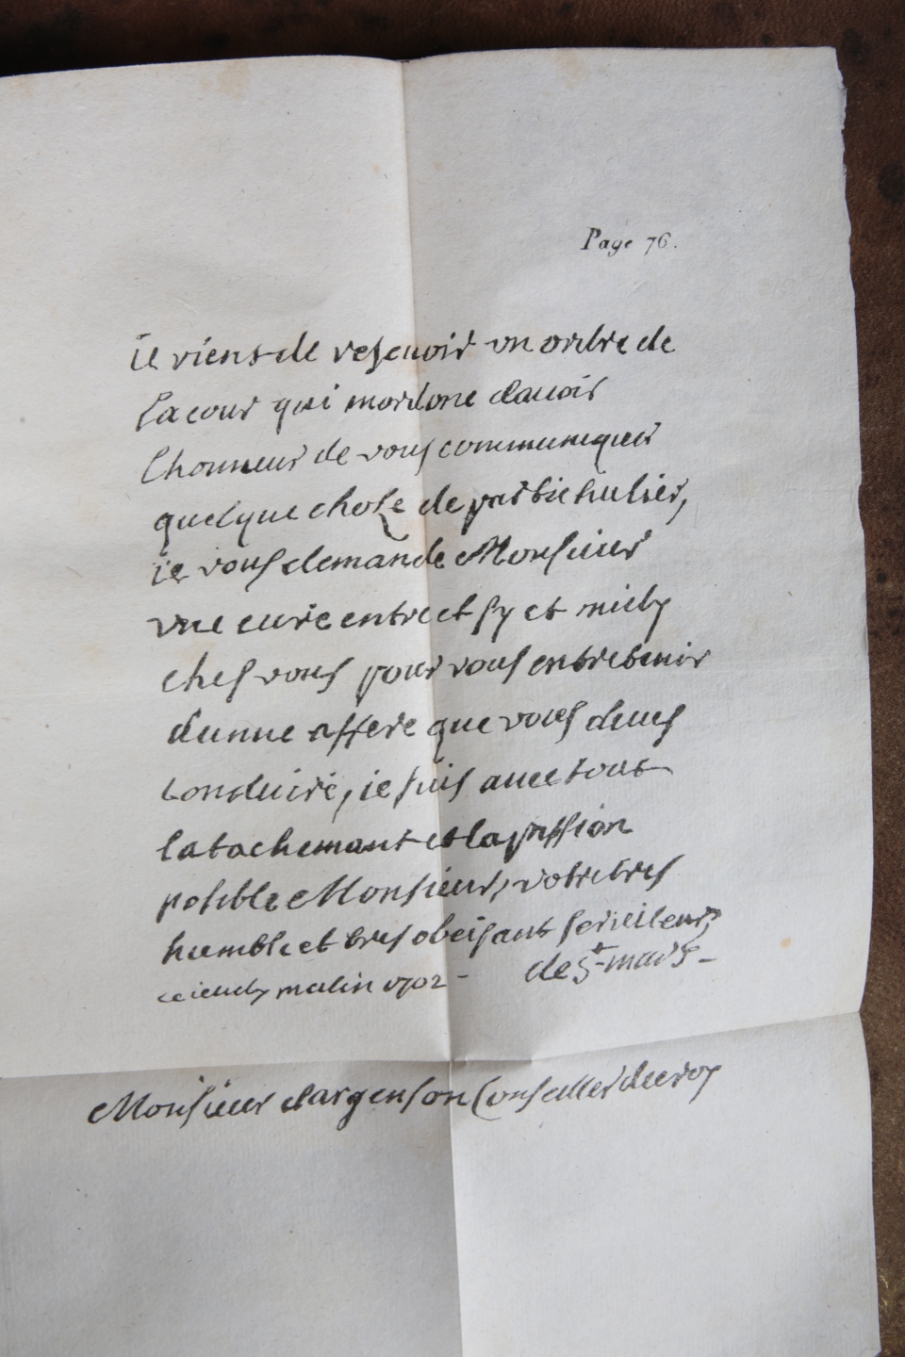 Page 76.
ie viens de resevoir un ordre de
la cour qui mordone dauoir
lhonneur de vous communiquer
quelque choze de partiehulier,
ie vous demande Monsieur
vne eure entre et sy et midy
ches vous pour vous entretenir
dunne affere que vous deues
conduire, ie suis auec tout
latachemant et la passion
posible Monsieur, votre tres
humble et tres obeisant serviteur,
de St-mars-
ce ieudy matin 1702-
Monsieur dargenson Conseller de roy